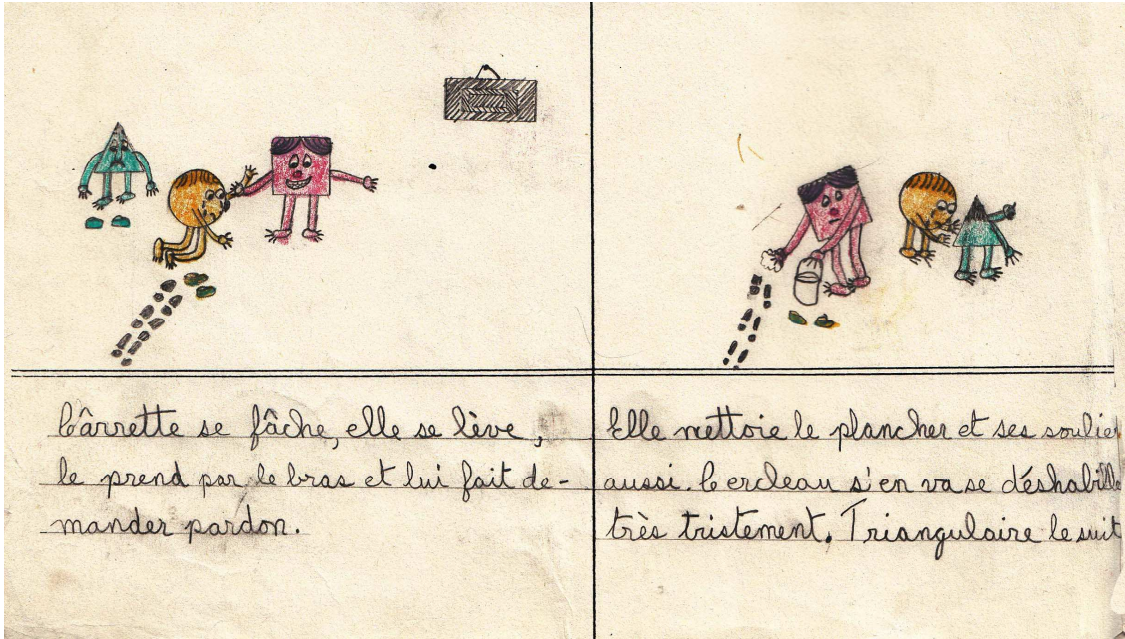 Cârrette se fâche, elle se lève,
le prend par le bras et lui fait de-
mander pardon.
Elle nettoie le plancher et ses soulie
aussi. Cercleau s'en va se déshabille
très tristement. Triangulaire le suit